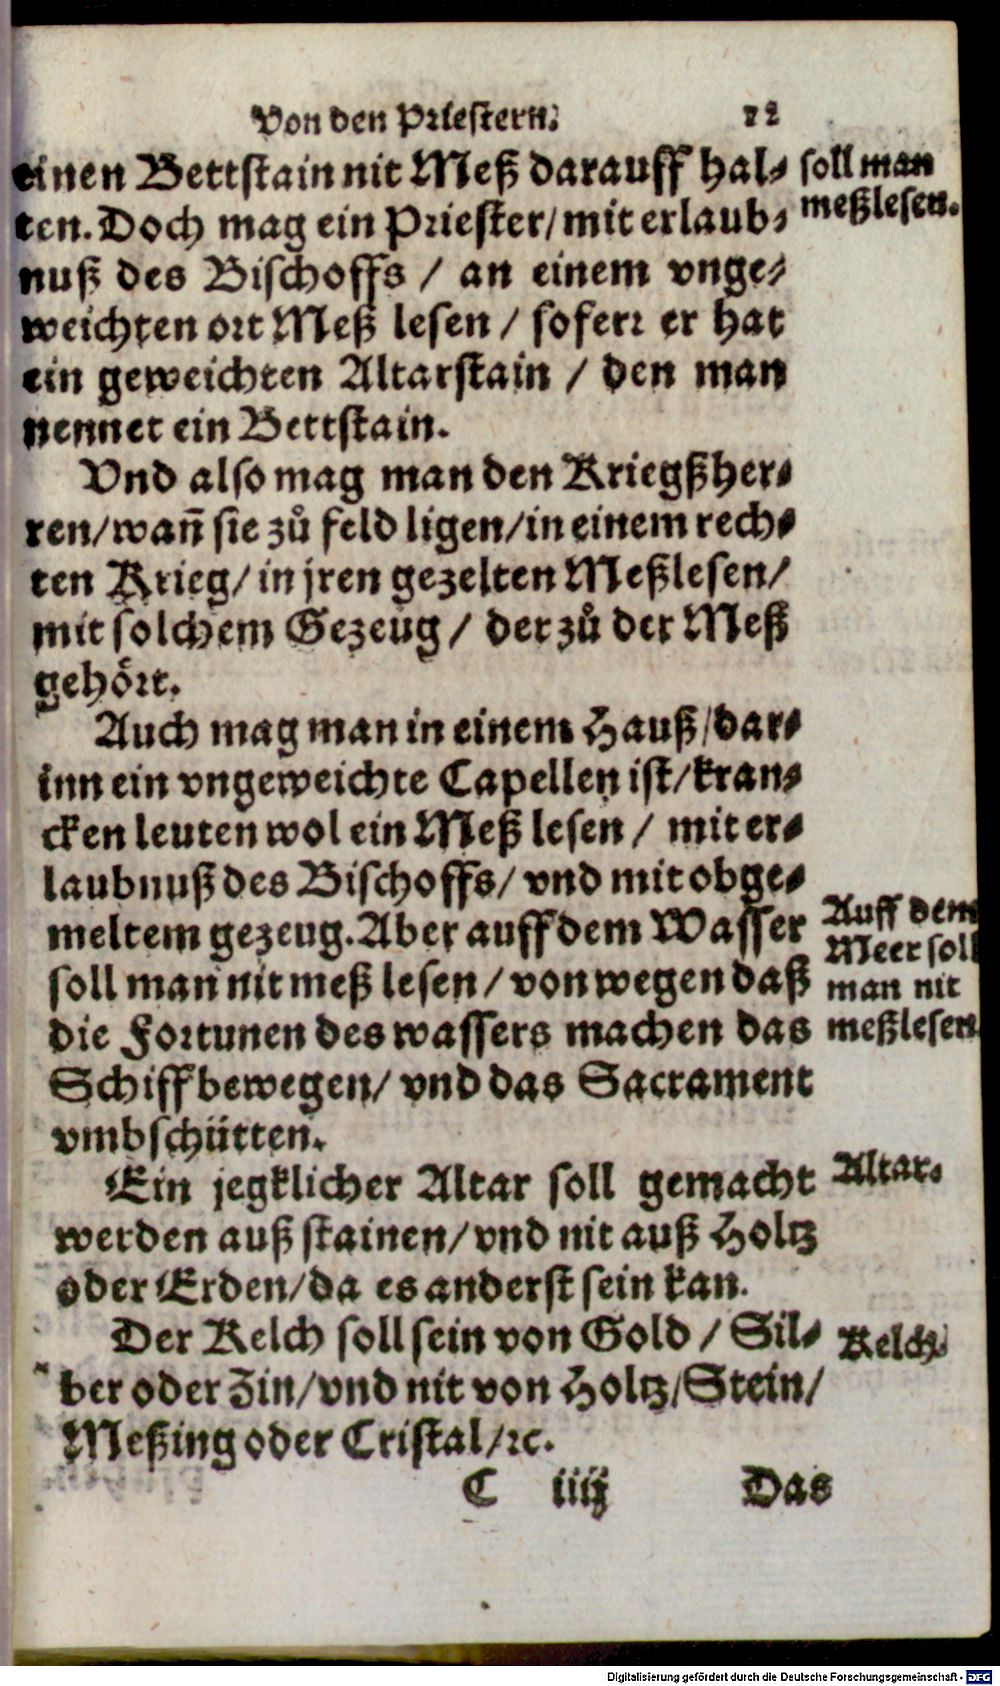 Von den Priestern. 12
einen Bettstain nit Meß darauff hal-
ten. Doch mag ein Priester/ mit erlaub-
nuß des Bischoffs / an einem vnge-
weichten ort Meß lesen / soferr er hat
ein geweichten Altarstain / den man
nennet ein Bettstain.
soll man
meßlesen.
Vnd also mag man den Kriegßher-
ren/ wañ sie zů feld ligen/ in einem rech-
ten Krieg/ in jren gezelten Meßlesen/
mit solchem Gezeug / der zů der Meß
gehört.
Auch mag man in einem Hauß/ dar-
inn ein vngeweichte Capellen ist/ kran-
cken leuten wol ein Meß lesen / mit er-
laubnuß des Bischoffs/ vnd mit obge-
meltem gezeug. Aber auff dem Wasser
soll man nit meß lesen / von wegen daß
die Fortunen des wassers machen das
Schiff bewegen/ vnd das Sacrament
vmbschütten.
Auff dem
Meer soll
man nit
meßlesen
Ein jegklicher Altar soll gemacht
werden auß stainen/ vnd nit auß Holtz
oder Erden/ da es anderst sein kan.
Altar.
Der Kelch soll sein von Gold / Sil-
ber oder Zin/ vnd nit von Holtz/ Stein/
Meßing oder Cristal/ ꝛc.
Kelch.
C iiij Das
Digitalisierung gefördert durch die Deutsche Forschungsgemeinschaft - DFG